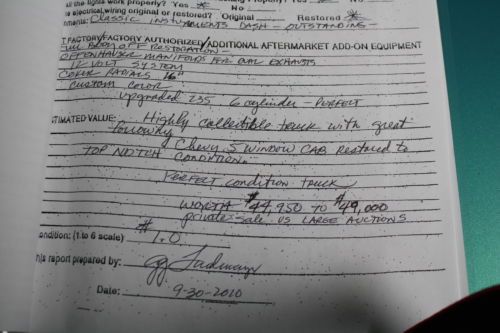 all the lights work properly? Yes * No
electrical, wiring original or restored? Original Restored *
ments: Classic instruments Dash - outstanding -
T FACTORY/FACTORY AUTHORIZED/ADDITIONAL AFTERMARKET ADD-ON EQUIPMENT
Full Body off Restoration -
Offenhauser manifolds for dual exhausts
12 volt system
Coker Radials 16"
Custom color
upgraded 235 6 cylinder - Perfect
TIMATED VALUE: Highly collectible truck with great
following
Chevy 5 window CAB Restored to
TOP NOTCH CONDITION.
Perfect condition truck
WORTH $44,950 TO $49,000
private sale US LARGE AUCTIONS
ondition: (1 to 6 scale) #1.0
his report prepared by:
Date: 9-30-2010